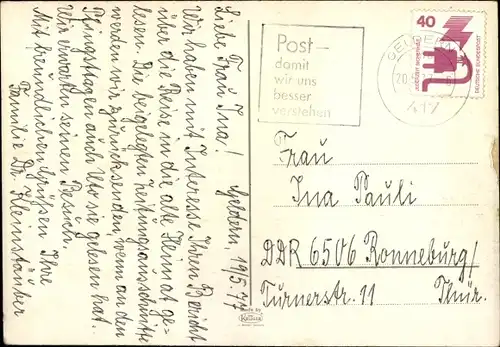 Geldern, 19/5.77
Liebe Frau Ina!
Wir haben mit Interesse Ihren Bericht
über die Reise in die alte Heimat ge-
lesen. Die beigelegten Zeitungsausschnitte
werden wir zurücksenden, wenn an den
Pfingsttagen auch Uto sie gelesen hat.
Wir erwarten seinen Besuch.
Mit freundlichen Grüßen Ihre
Familie Dr. Kleinstäuber
Post –
damit
wir uns
besser
verstehen
GELDERN
20.5.77
417
40
DEUTSCHE BUNDESPOST
Frau
Ina Pauli
DDR 6506 Ronneburg/
Turnerstr. 11 Thür.
Krüger